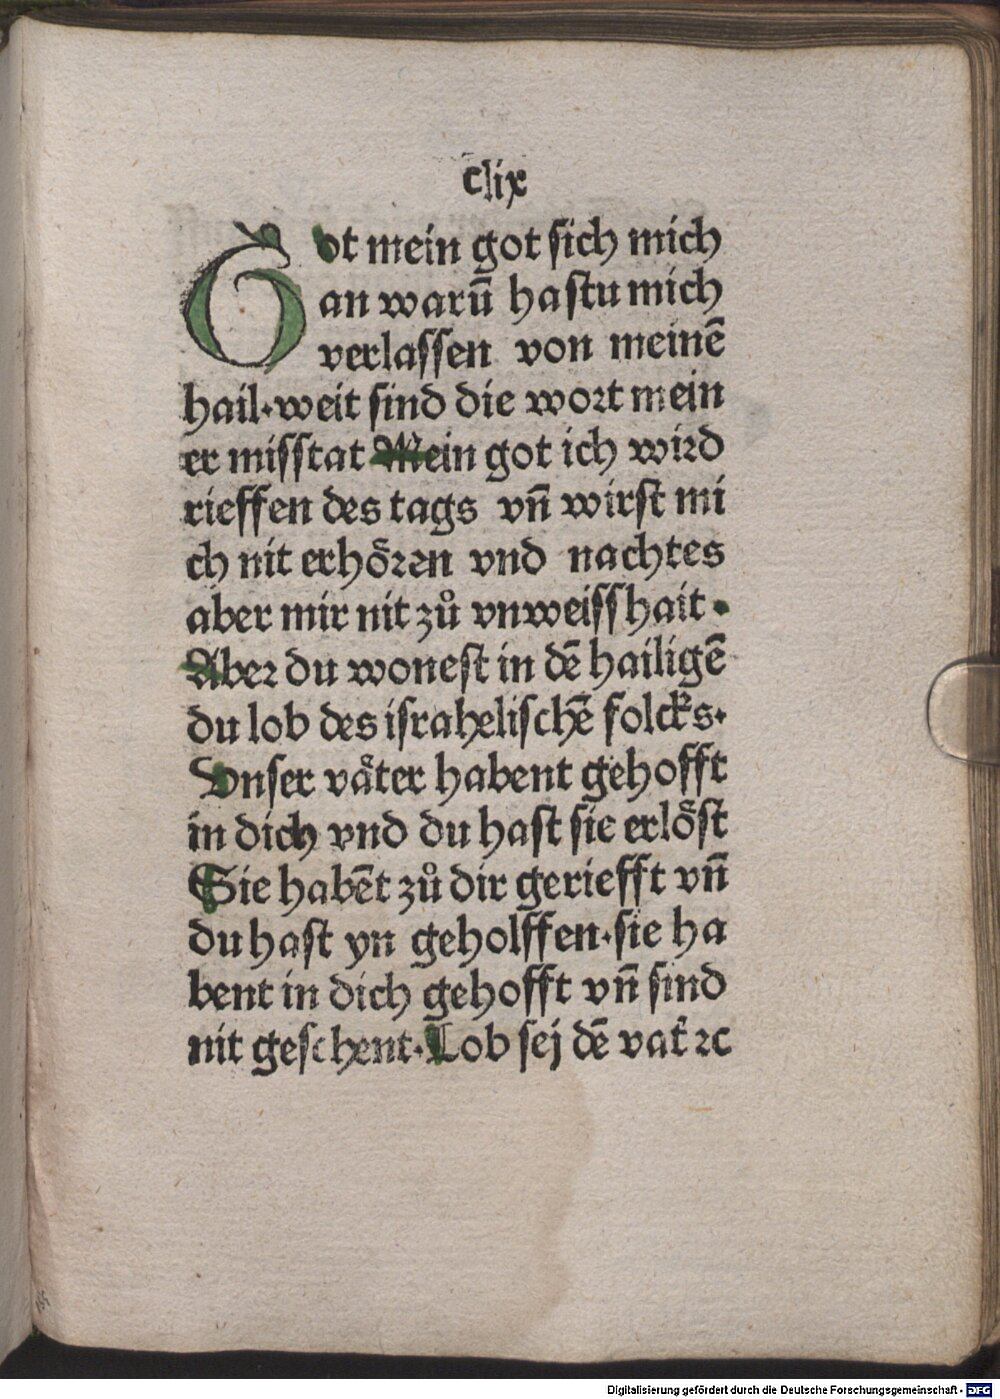 clix
Got mein got sich mich
an warū hastu mich
verlassen von meinē
hail·weit sind die wort mein
er misstat Mein got ich wird
rieffen des tags vn̄ wirst mi
ch nit erhoͤren vnd nachtes
aber mir nit zů vnweisshait·
Aber du wonest in dē hailigē
du lob des israhelischē folcks·
Vnser vaͤter habent gehofft
in dich vnd du hast sie erloͤst
Sie habēt zů dir geriefft vn̄
du hast yn geholffen·sie ha
bent in dich gehofft vn̄ sind
nit geschent·Lob sej dē vat̓ ꝛc
Digitalisierung gefördert durch die Deutsche Forschungsgemeinschaft - DFG